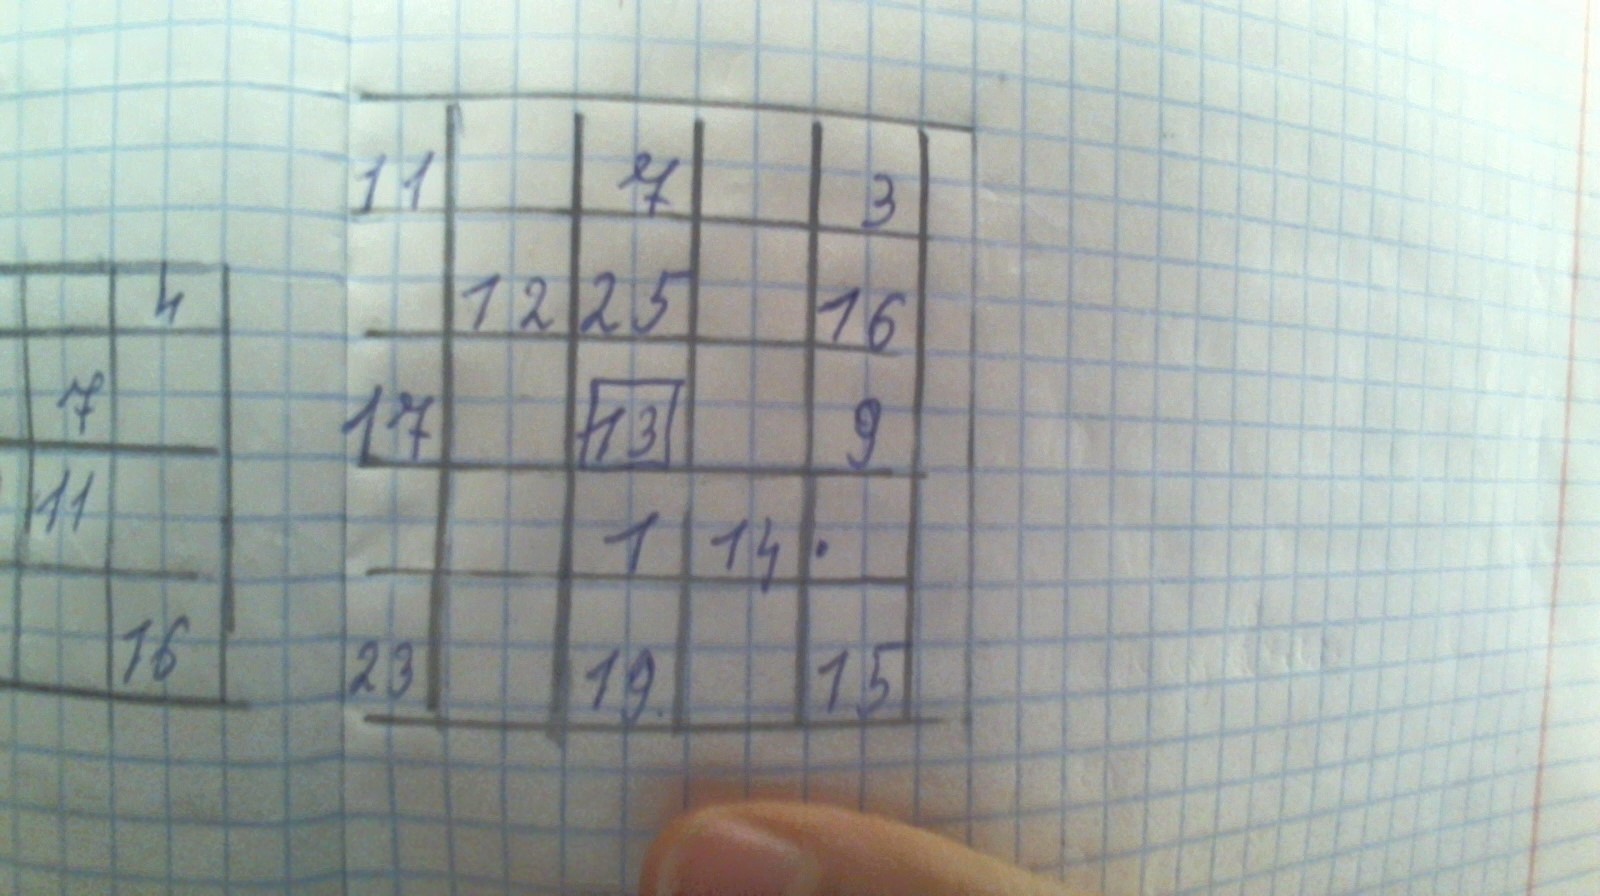 11 7 3
12 25 16
17 13 9
1 14 .
23 19 15
4
7
11
16